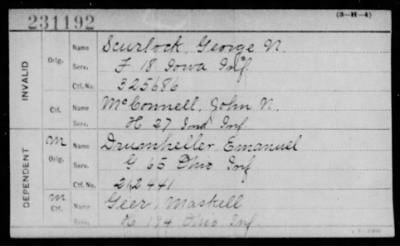 231192
(3-H-4)
INVALID
Orig.
Name Scurlock, George N.
Serv. F 18 Iowa Inf.
Ctf. No. 325686
Ctf.
Name McConnell, John N.
Serv. H 27 Ind Inf
DEPENDENT
M Orig.
Name Drumheller, Emanuel
Serv. G 65 Ohio Inf
Ctf. No. 212441
M Ctf.
Name Geer, Maskell
Serv. 194 Ohio Inf.